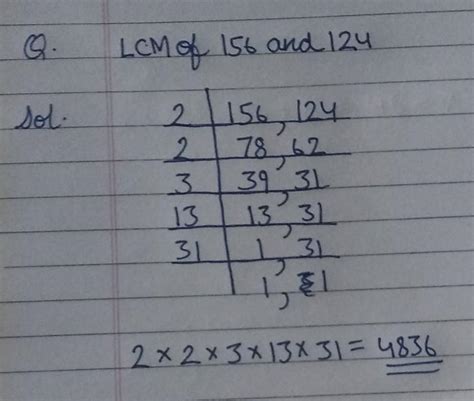 Q. LCM of 156 and 124
Sol. 2 | 156, 124
2 | 78, 62
3 | 39, 31
13 | 13, 31
31 | 1, 31
| 1, 1
2 × 2 × 3 × 13 × 31 = 4836